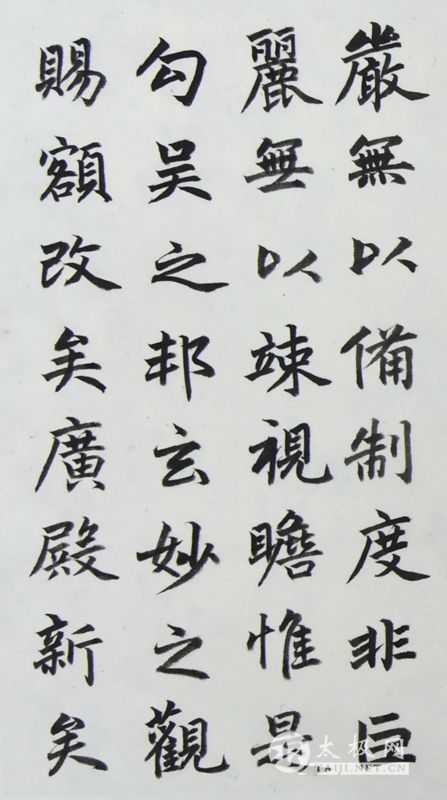 嚴無以備制度非巨
麗無以竦視瞻惟是
勾吳之邦玄妙之觀
賜額改矣廣殿新矣
太极网
TAIJI.NET.CN